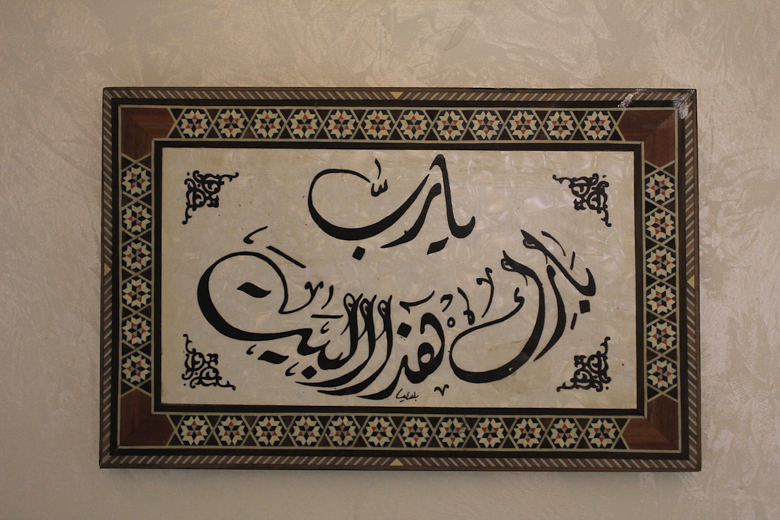 يا ربّ
بَارِك هذا البيت